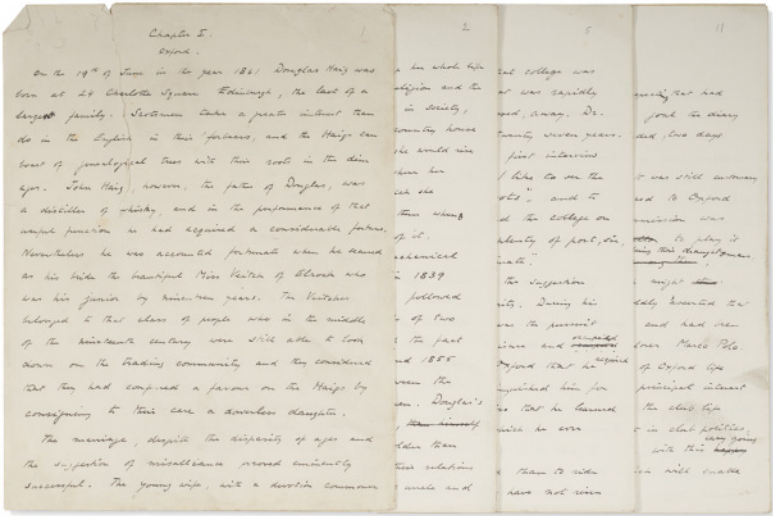 Chapter I.
Oxford.
On the 19th of June in the year 1861 Douglas Haig was
born at 24 Charlotte Square Edinburgh, the last of a
large family. Scotsmen take a greater interest than
do in the English in their forbears, and the Haigs can
boast of genealogical trees with their roots in the dim
ages. John Haig, however, the father of Douglas, was
a distiller of whisky, and in the performance of that
useful function he had acquired a considerable fortune.
Nevertheless he was accounted fortunate when he secured
as his bride the beautiful Miss Veitch of Eliock who
was his junior by nineteen years. The Veitches
belonged to that class of people who in the middle
of the nineteenth century were still able to look
down on the trading community and they considered
that they had conferred a favour on the Haigs by
consigning to their care a dowerless daughter.
The marriage, despite the disparity of ages and
the suggestion of misalliance proved eminently
successful. The young wife, with a devotion commoner
2
her whole life
religion and the
in society,
country house
she would rise
her
she
them when
of it.
mechanical
in 1839
followed
of two
the fact
and 1855
when the
Douglas's
them himself
older than
their relations
uncle and
5
that college was
was rapidly
away. Dr.
twenty seven years.
first interview
I like to see the
and to
the college on
plenty of port, sir,
the suggestion
During his
was the pursuit
and occupied
Oxford that he
acquired
him for
that he learned
he ever
than to ride
have not risen
11
that had
the diary
two days
It was still
to Oxford
was
to play it
their draughtsman.
might
inserted the
and had
over Marco Polo
of Oxford life
principal interest
the club life
in club politics,
easy going
with this happy
with